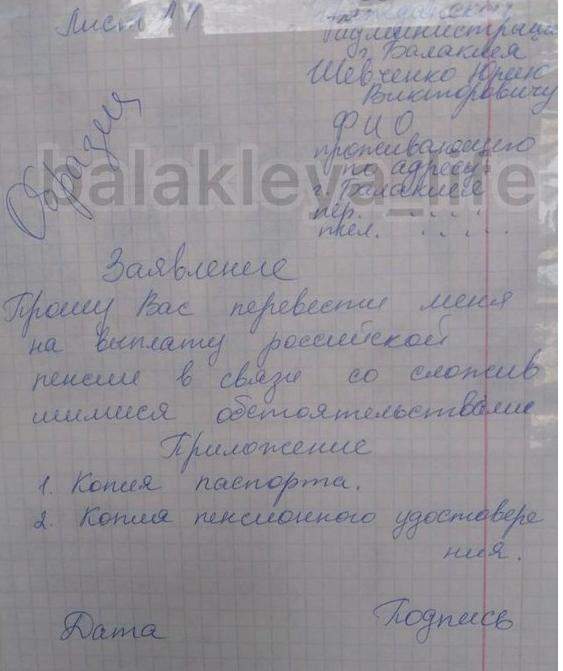 Лист А4
администрации
г. Балаклея
Шевченко Юрию
Викторовичу
Образец
ФИО
проживающего
по адресу
г. Балаклея
balakleya_life
пер. . . . .
тел. . . . . .
Заявление
Прошу Вас перевести меня
на выплату российской
пенсии в связи со сложив
шимися обстоятельствами
Приложение
1. Копия паспорта.
2. Копия пенсионного удостовере
ния.
Дата
Подпись